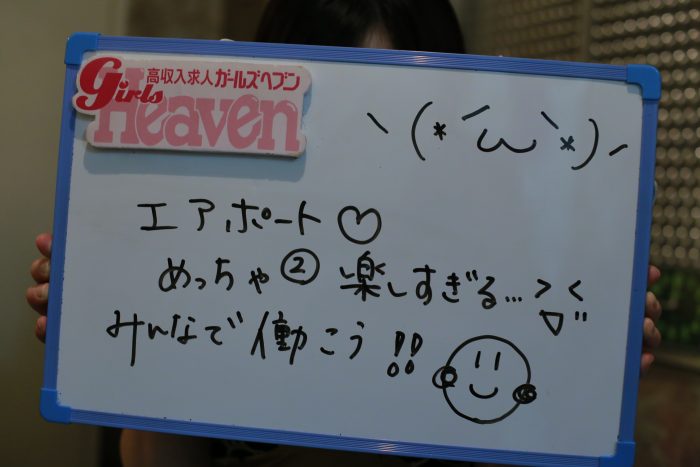 高収入求人ガールズヘブン
Girls
Heaven
ヽ(*´ω`*)ノ
エアポート♡
めっちゃ② 楽しすぎる…><
みんなで働こう!!